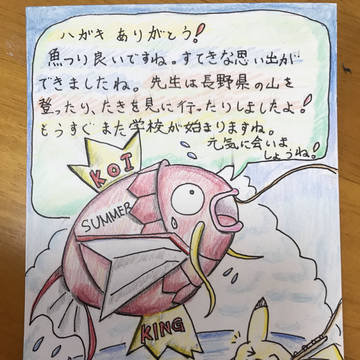 ハガキ ありがとう!
魚つり良いですね。すてきな思い出が
できましたね。先生は長野県の山を
登ったり、たきを見に行ったりしましたよ!
もうすぐまた学校が始まりますね。
元気に会いま
しょうね!
KOI
SUMMER
KING